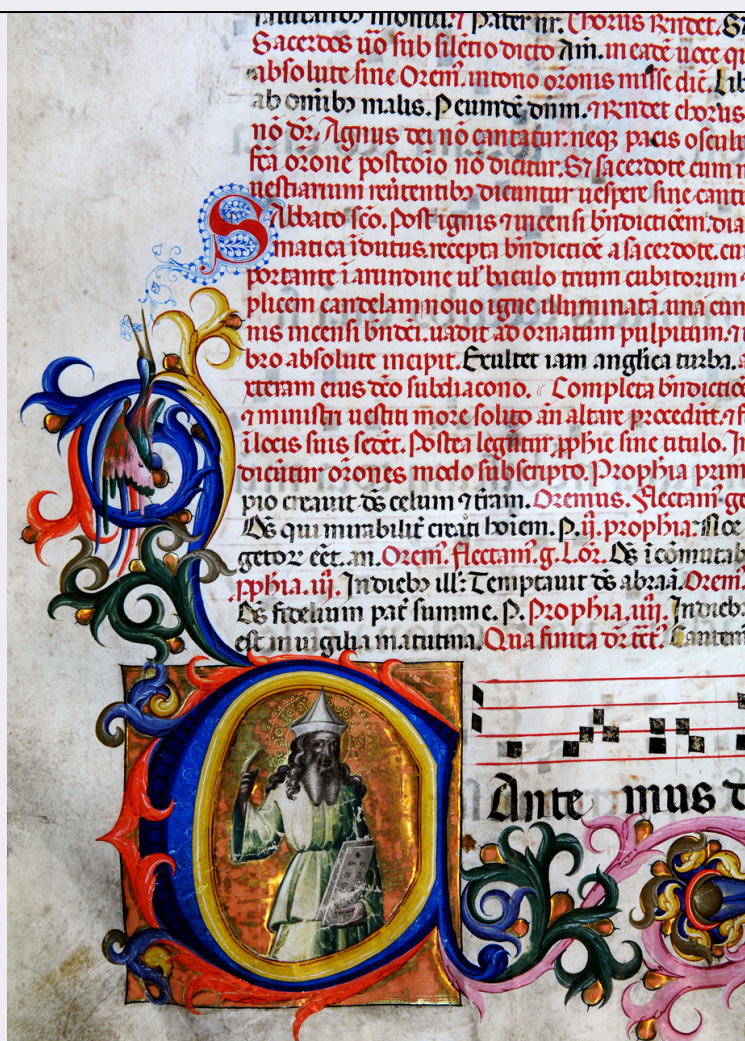 Pater nr. Chorus Rndet. S
Sacerdos uo sub siletio dicto Am. in eade uoce
absolute sine Orem. in tono oronis misse dic. Lib
ab omibz malis. P eumde dnm. ⁊ Rndet chorus
no dr. Agnus dei no cantatur. neqz pacis oscul
orone postcoio no dicitur. S sacerdote cum
uestiarium dicuntur uespere sine canti
Sabbato sco. Post ignis ⁊ incensi bndictioem. dia
matica idutus. recepta bndictioe a sacerdote. cu
portante i arundine ul baculo trium cubitorum
plicem candelam nouo igne illuminata. una cum
nis incensi bndci. uadit ad ornatum pulpitum. ⁊
bro absolute incipit. Exultet iam anglica turba. a
xteram eius sto subdiacono. Completa bndictio
⁊ ministri uestiti more solito an altare procedut. ⁊
i locis suis sedet. Postea leguntur pphie sine titulo. In
dicutur orones modo subscripto. Prophia prim
pio creauit ds celum ⁊ tram. Oremus. Flectam ge
Ds qui mirabilit creasti hoiem. P. ij. prophia. Noe
Orem. flectam. g. Lor. Ds i comutab
pphia. iij. In diebz ill: Temptauit ds abraa. Orem
Ds fidelium pat summe. P. Prophia. iiij. In diebz
est in uigilia matutina. Qua finita dr tct. Cantem
Ante mus d